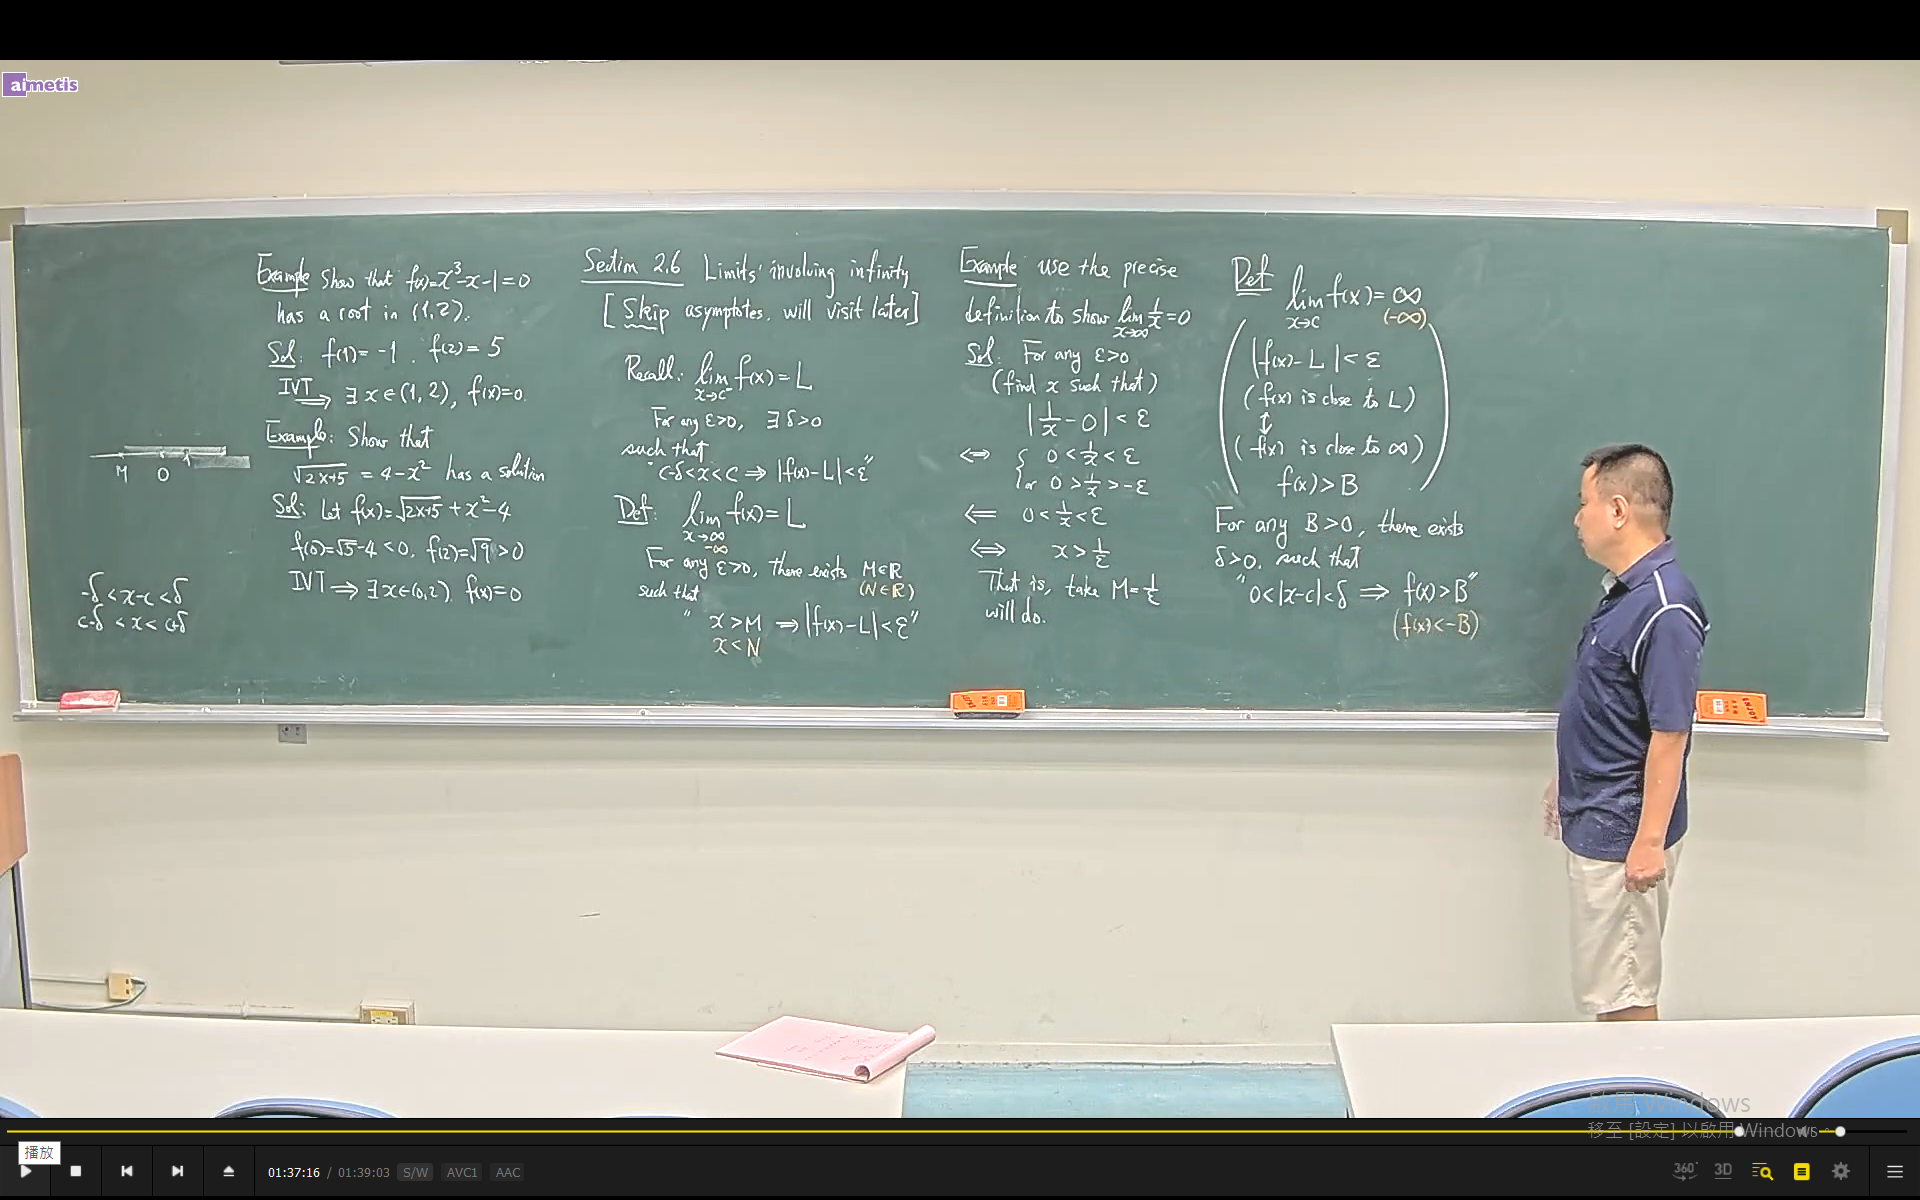 aimetis
M O 1
-δ < x-c < δ
c-δ < x < c+δ
Example Show that f(x)=x³-x-1=0
has a root in (1,2).
Sol: f(1)= -1 . f(2)= 5
IVT ⟹ ∃ x∈(1,2), f(x)=0.
Example: Show that
√2x+5 = 4-x² has a solution
Sol: Let f(x)=√2x+5 + x²-4
f(0)=√5-4<0, f(2)=√9>0
IVT ⟹ ∃ x∈(0,2) f(x)=0
Section 2.6 Limits involving infinity
[ Skip asymptotes, will visit later]
Recall: lim f(x) = L
x→c⁻
For any ε>0, ∃ δ>0
such that
"c-δ<x<c ⟹ |f(x)-L|<ε"
Def: lim f(x)= L
x→∞
-∞
For any ε>0, there exists M∈R
such that (N∈R)
" x>M ⟹ |f(x)-L|<ε"
x<N
Example use the precise
definition to show lim 1/x = 0
x→∞
Sol: For any ε>0
(find x such that)
|1/x - 0| < ε
⟺ { 0<1/x<ε
or 0>1/x>-ε
⟸ 0<1/x<ε
⟺ x>1/ε
That is, take M=1/ε
will do.
Def lim f(x)= ∞
x→c (-∞)
|f(x)-L|<ε
(f(x) is close to L)
↕
(f(x) is close to ∞)
f(x)>B
For any B>0, there exists
δ>0, such that
"0<|x-c|<δ ⟹ f(x)>B"
(f(x)<-B)
ENJOY
啟用 Windows
移至 [設定] 以啟用 Windows。
播放
01:37:16 / 01:39:03 S/W AVC1 AAC
360° 3D